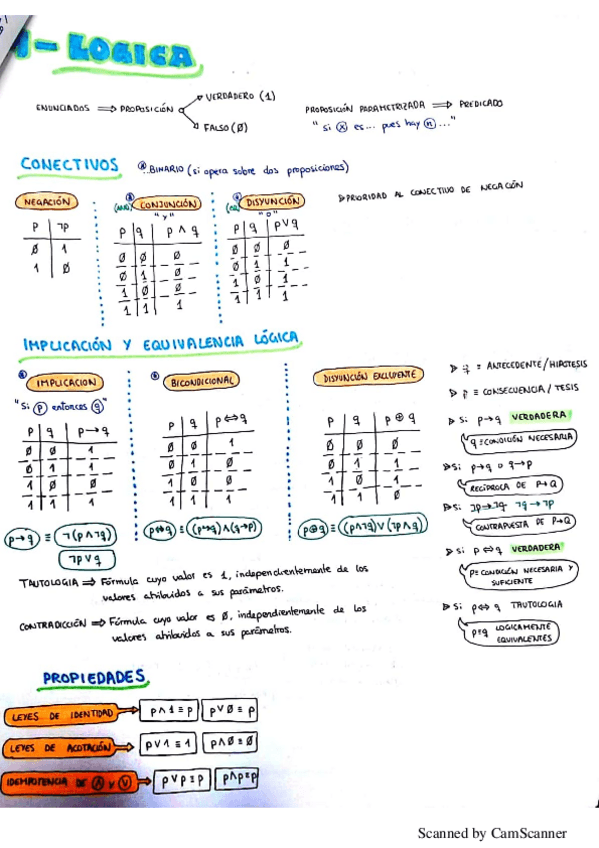 1- LOGICA
ENUNCIADOS ⟹ PROPOSICIÓN
VERDADERO (1)
FALSO (Ø)
PROPOSICIÓN PARAMETRIZADA ⟹ PREDICADO
"Si ⓧ es... pues hay ⓝ ..."
CONECTIVOS
BINARIO (si opera sobre dos proposiciones)
▷ PRIORIDAD AL CONECTIVO DE NEGACIÓN
NEGACIÓN
p | ¬p
Ø | 1
1 | Ø
(AND) CONJUNCIÓN
"y"
p | q | p ∧ q
Ø | Ø | Ø
Ø | 1 | Ø
1 | Ø | Ø
1 | 1 | 1
(OR) DISYUNCIÓN
"o"
p | q | p ∨ q
Ø | Ø | Ø
Ø | 1 | 1
1 | Ø | 1
1 | 1 | 1
IMPLICACIÓN Y EQUIVALENCIA LÓGICA
IMPLICACION
"Si ⓟ entonces ⓠ"
p | q | p → q
Ø | Ø | 1
Ø | 1 | 1
1 | Ø | Ø
1 | 1 | 1
p→q ≡ ¬(p∧¬q)
¬p∨q
BICONDICIONAL
p | q | p ⟺ q
Ø | Ø | 1
Ø | 1 | Ø
1 | Ø | Ø
1 | 1 | 1
p⟺q ≡ (p→q)∧(q→p)
DISYUNCIÓN EXCLUYENTE
p | q | p ⊕ q
Ø | Ø | Ø
Ø | 1 | 1
1 | Ø | 1
1 | 1 | Ø
p⊕q ≡ (p∧¬q)∨(¬p∧q)
≡ ANTECEDENTE/HIPÓTESIS
≡ CONSECUENCIA/TESIS
▷ Si p→q VERDADERA
q ≡ CONDICIÓN NECESARIA
▷ Si p→q o q→p
RECÍPROCA DE P→Q
▷ Si ¬p→¬q ¬q→¬p
CONTRAPUESTA DE P→Q
▷ Si p⟺q VERDADERA
P≡ CONDICIÓN NECESARIA Y
SUFICIENTE
▷ Si p⟺q TAUTOLOGIA
p≡q LOGICAMENTE
EQUIVALENTES
TAUTOLOGIA ⟹ Fórmula cuyo valor es 1, independientemente de los
valores atribuidos a sus parámetros.
CONTRADICCIÓN ⟹ Fórmula cuyo valor es Ø, independientemente de los
valores atribuidos a sus parámetros.
PROPIEDADES
LEYES DE IDENTIDAD → p∧1≡p p∨Ø≡p
LEYES DE ACOTACIÓN → p∨1≡1 p∧Ø≡Ø
IDEMPOTENCIA DE ∧ y ∨ → p∨p≡p p∧p≡p
Scanned by CamScanner